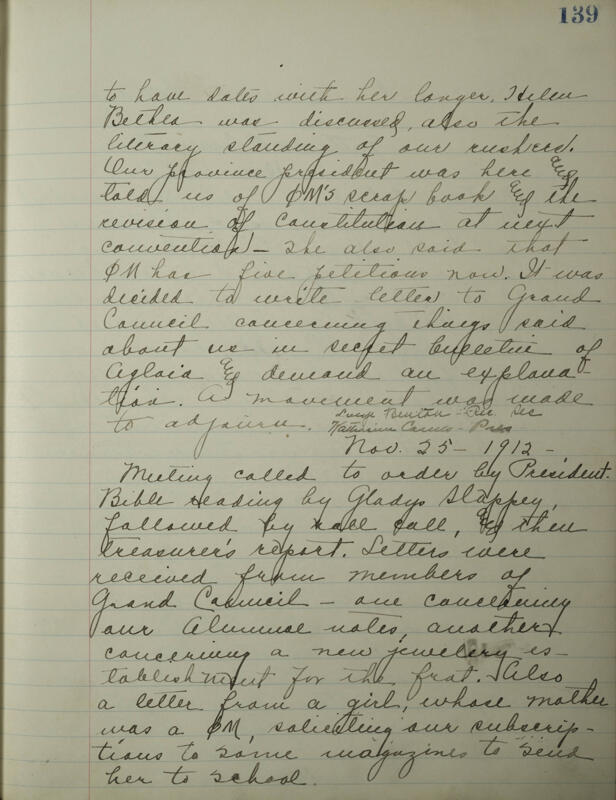 139
to have dates with her longer. Helen
Bethea was discussed, also the
literary standing of our rushees.
Our province president was here and
told us of ΦM's scrap book and the
revision of Constitution at next
convention - She also said that
ΦM has five petitions now. It was
decided to write letter to Grand
Council concerning things said
about us in secret bulletin of
Aglaia and demand an explana-
tion. A movement was made
to adjourn.
Rec Sec
Katherine - Pres
Nov. 25 - 1912 -
Meeting called to order by President.
Bible reading by Gladys Slappey,
followed by roll call, and then
treasurer's report. Letters were
received from members of
Grand Council - one concerning
our Alumnae notes, another
concerning a new jewelery es-
tablishment for the frat. Also
a letter from a girl, whose mother
was a ΦM, soliciting our subscrip-
tions to some magazines to send
her to school.